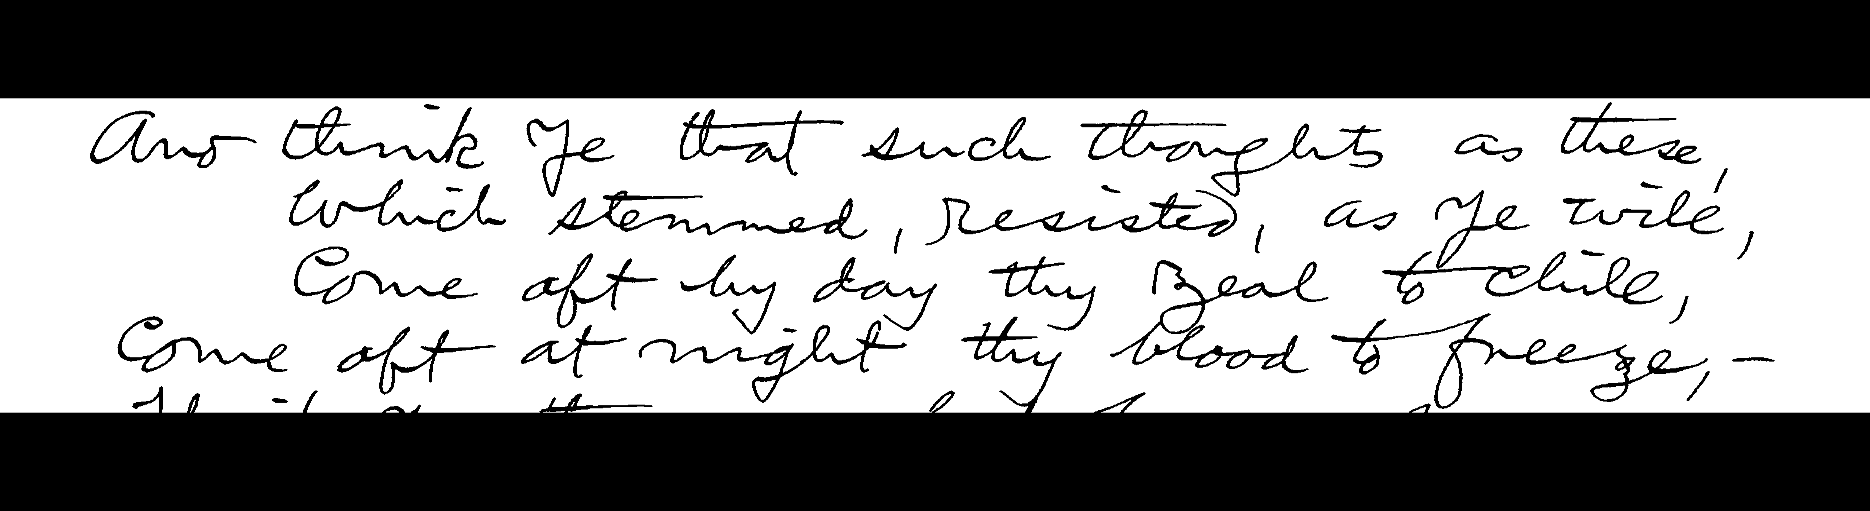 And think Ye that such thoughts as these,
Which stemmed, resisted, as Ye will,
Come oft by day thy zeal to chill,
Come oft at night thy blood to freeze,—